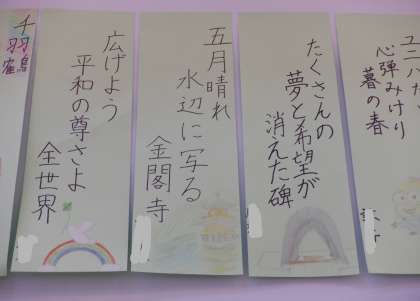 ユニバ
心弾みけり
暮の春
たくさんの
夢と希望が
消えた碑
五月晴れ
水辺に写る
金閣寺
広げよう
平和の尊さよ
全世界
千羽鶴